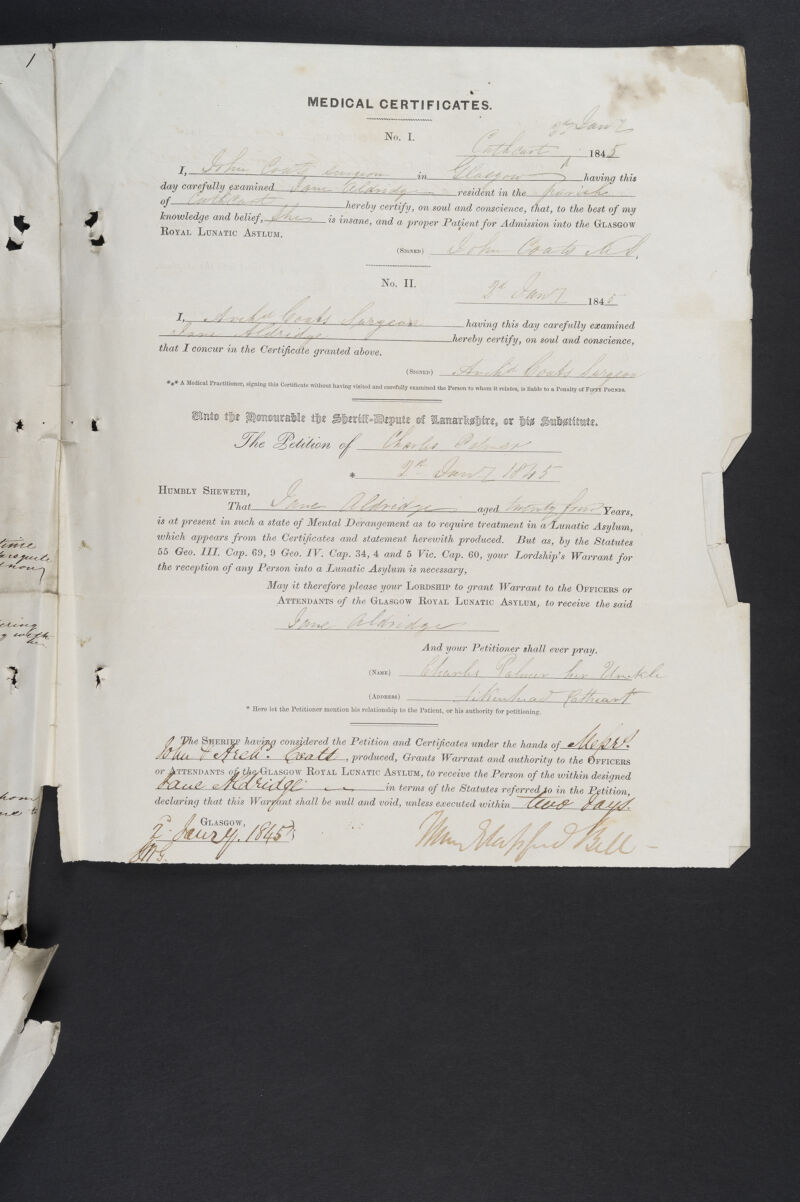 1
MEDICAL CERTIFICATES.
No. I.
2d Jany
Cathcart 1845
I, John Coats, surgeon in Glasgow having this
day carefully examined Jane Aldridge resident in the parish
of Cathcart hereby certify, on soul and conscience, that, to the best of my
knowledge and belief, She is insane, and a proper Patient for Admission into the GLASGOW
ROYAL LUNATIC ASYLUM.
(SIGNED) John Coats
No. II.
2d Jany 1845
I, Archd Coats Surgeon having this day carefully examined
Jane Aldridge hereby certify, on soul and conscience,
that I concur in the Certificate granted above.
(SIGNED) Archd Coats Surgeon
*** A Medical Practitioner, signing this Certificate without having visited and carefully examined the Person to whom it relates, is liable to a Penalty of FIFTY POUNDS.
Unto the Honourable the Sheriff-Depute of Lanarkshire, or his Substitute.
The Petition of Charles Palmer
* 2d Jany 1845
HUMBLY SHEWETH,
That Jane Aldridge aged twenty four Years,
is at present in such a state of Mental Derangement as to require treatment in a Lunatic Asylum,
which appears from the Certificates and statement herewith produced. But as, by the Statutes
55 Geo. III. Cap. 69, 9 Geo. IV. Cap. 34, 4 and 5 Vic. Cap. 60, your Lordship's Warrant for
the reception of any Person into a Lunatic Asylum is necessary,
May it therefore please your LORDSHIP to grant Warrant to the OFFICERS or
ATTENDANTS of the GLASGOW ROYAL LUNATIC ASYLUM, to receive the said
Jane Aldridge
And your Petitioner shall ever pray.
(NAME) Charles Palmer her Unckle
(ADDRESS) Aikenhead Cathcart
* Here let the Petitioner mention his relationship to the Patient, or his authority for petitioning.
The SHERIFF having considered the Petition and Certificates under the hands of Messrs.
John & Archd. Coats, produced, Grants Warrant and authority to the OFFICERS
or ATTENDANTS of the GLASGOW ROYAL LUNATIC ASYLUM, to receive the Person of the within designed
Jane Aldridge in terms of the Statutes referred to in the Petition,
declaring that this Warrant shall be null and void, unless executed within two days.
GLASGOW,
2d Jany. 1845.
Bell